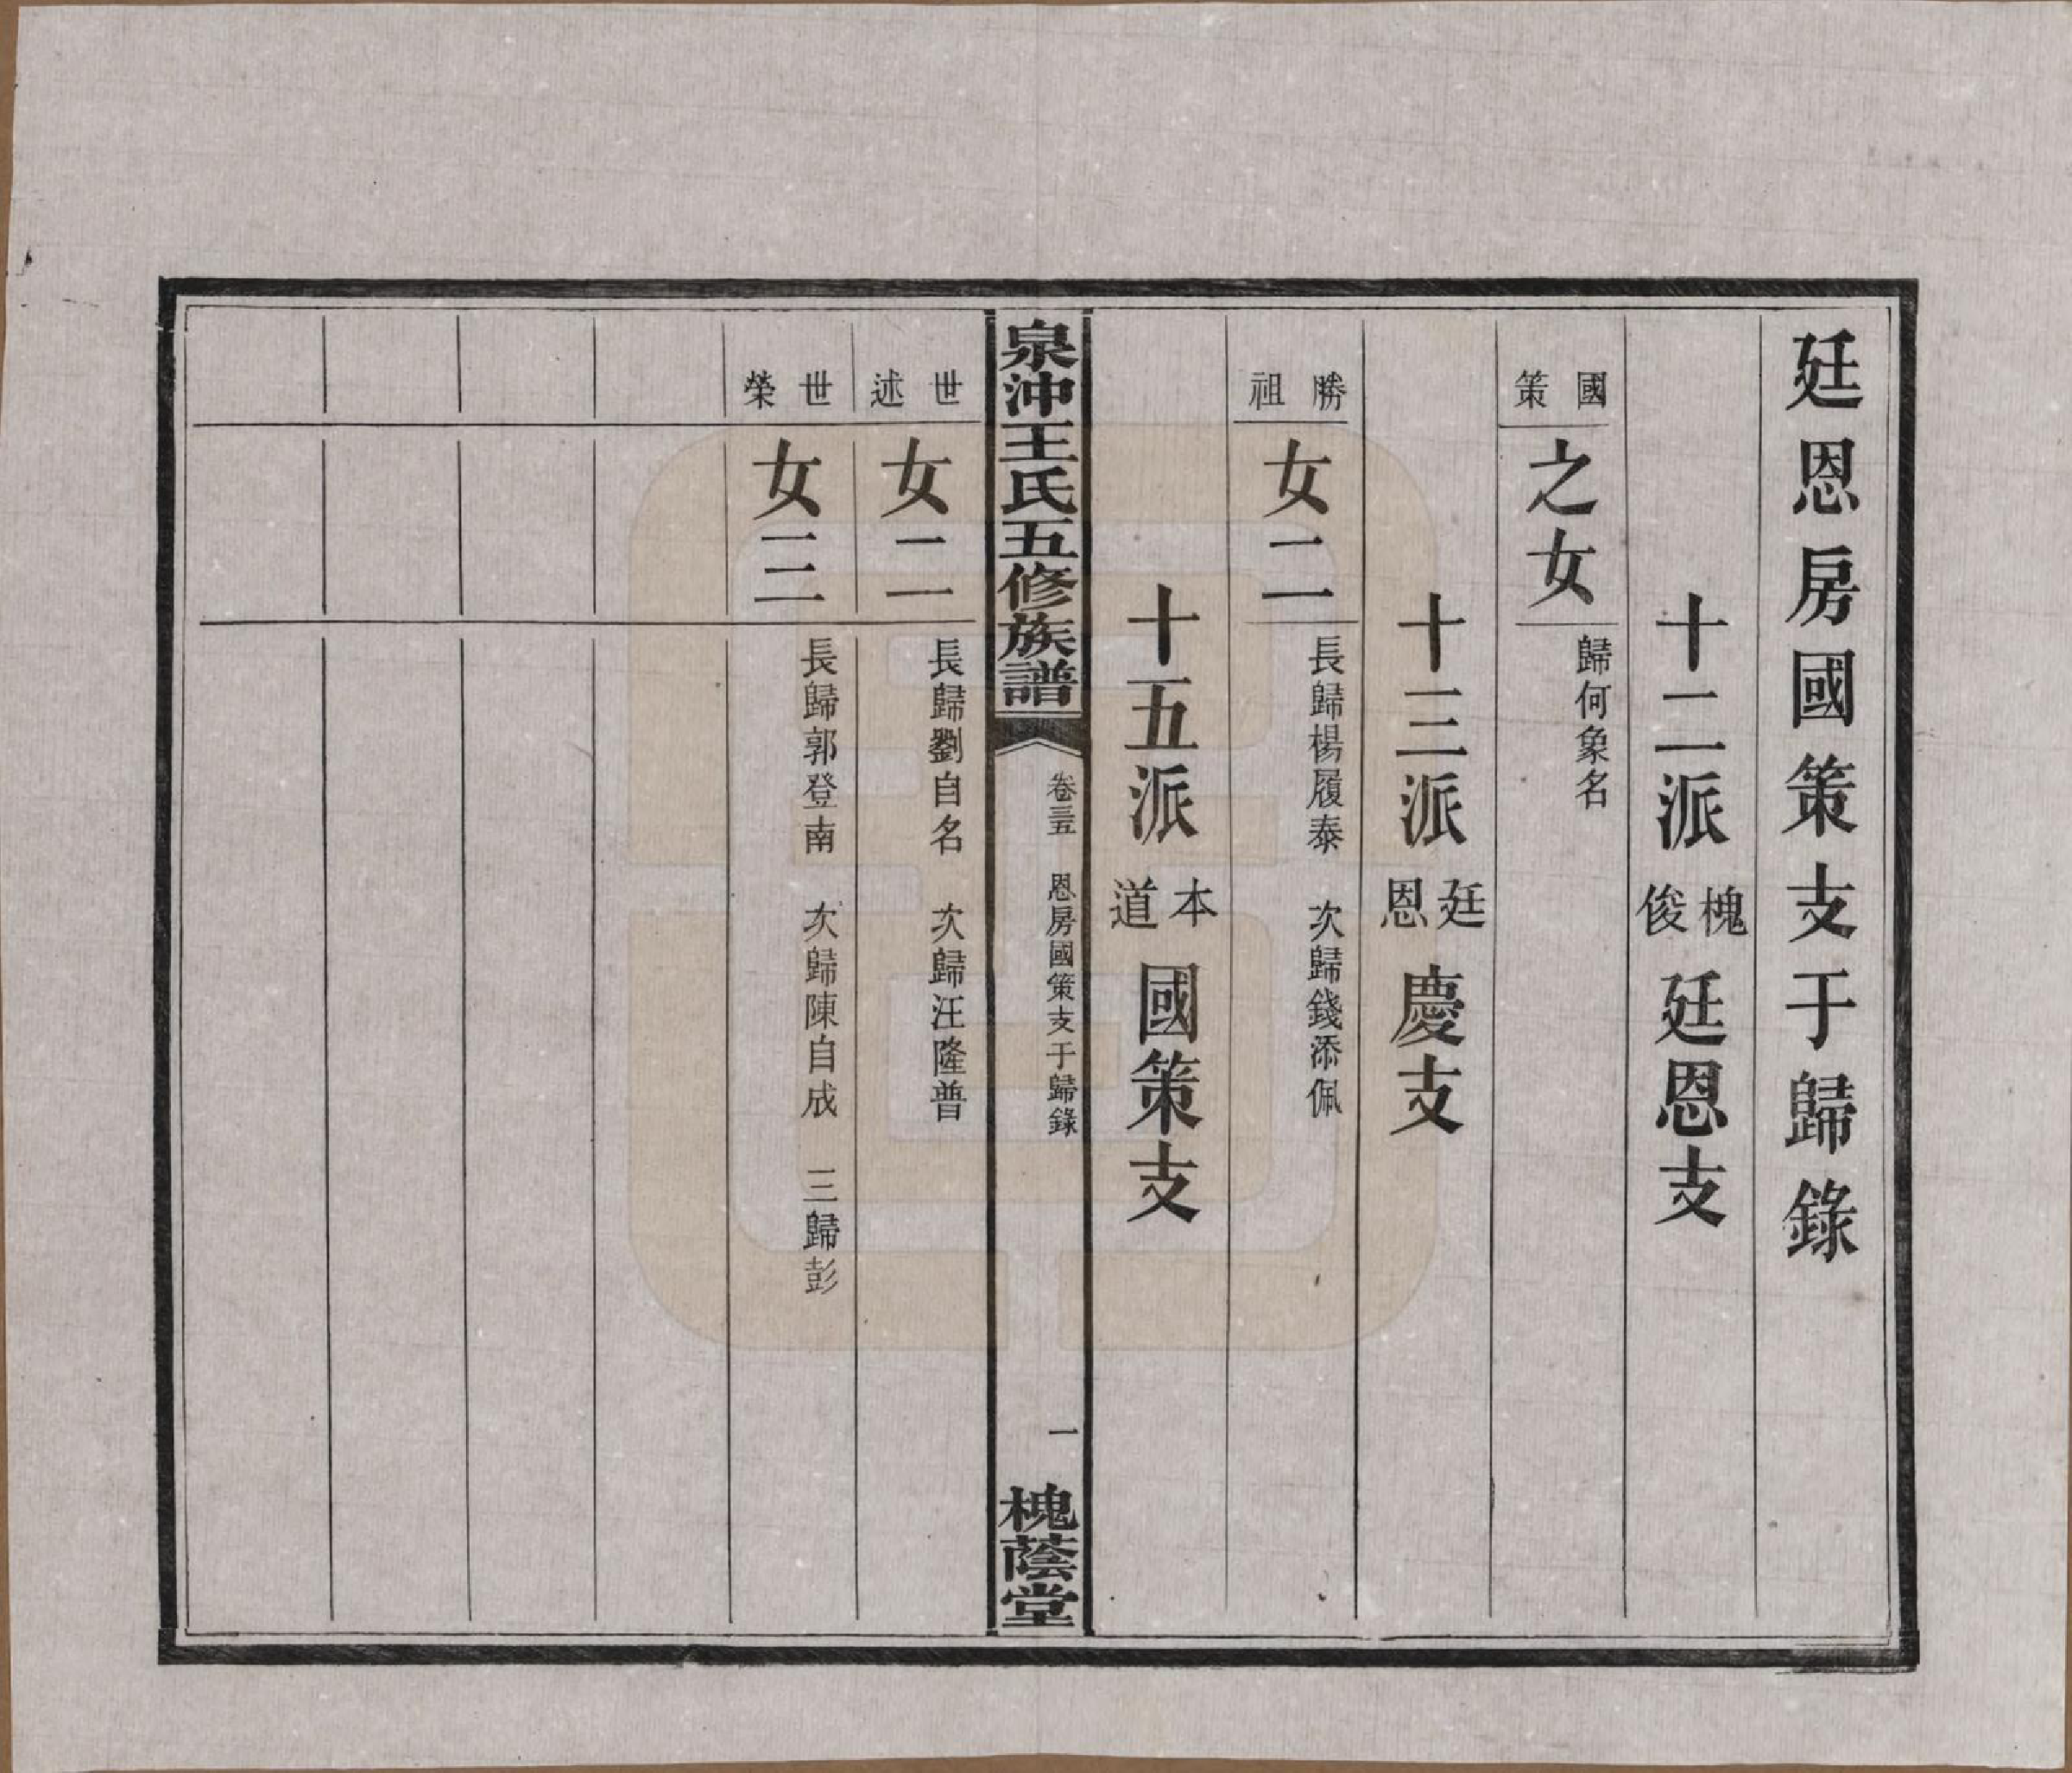 廷恩房國策支于歸錄
十二派 槐俊 廷恩支
國策 之女 歸何象名
十三派 廷恩 慶支
勝祖 女二 長歸楊履泰 次歸錢添佩
十五派 本道 國策支
泉沖王氏五修族譜 卷三五 恩房國策支于歸錄 一 槐蔭堂
世述 女二 長歸劉自名 次歸汪隆普
世榮 女三 長歸郭登南 次歸陳自成 三歸彭